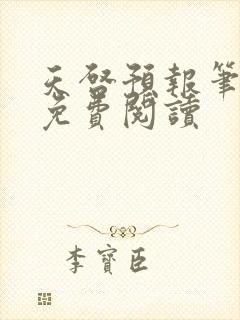 天啓預報筆
免費閱讀
李寶臣